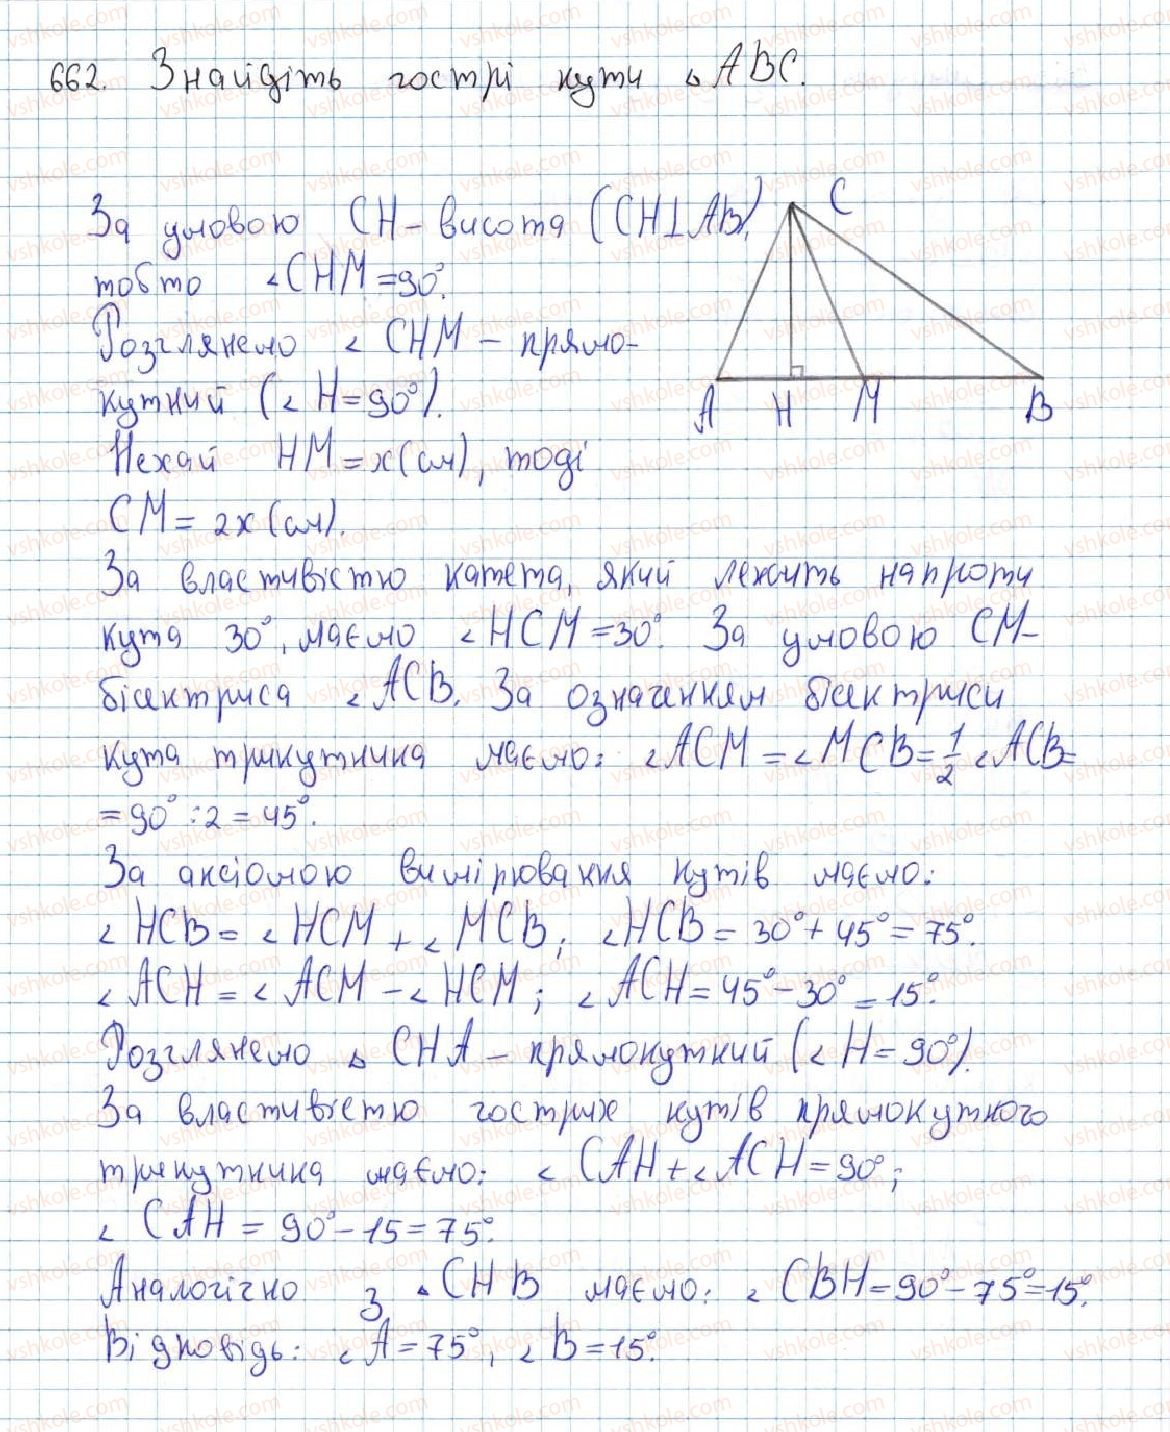 662. Знайдіть гострі кути △ ABC.
За умовою CH – висота (CH⊥AB),
тобто ∠CHM = 90°.
C
A H M B
Розглянемо ∠ CHM – прямо-
кутний (∠ H = 90°).
Нехай HM = x (см), тоді
CM = 2x (см).
За властивістю катета, який лежить напроти
кута 30°, маємо ∠HCM = 30°. За умовою CM–
бісектриса ∠ACB. За означенням бісектриси
кута трикутника маємо: ∠ACM = ∠MCB = 1/2 ∠ACB =
= 90° : 2 = 45°.
За аксіомою вимірювання кутів маємо:
∠ HCB = ∠ HCM + ∠ MCB; ∠HCB = 30° + 45° = 75°.
∠ ACH = ∠ ACM – ∠ HCM; ∠ ACH = 45° – 30° = 15°.
Розглянемо △ CHA – прямокутний (∠ H = 90°).
За властивістю гострих кутів прямокутного
трикутника маємо: ∠ CAH + ∠ ACH = 90°;
∠ CAH = 90° – 15 = 75°.
Аналогічно з △CHB маємо: ∠ CBH = 90° – 75° = 15°.
Відповідь: ∠ A = 75°, ∠ B = 15°.